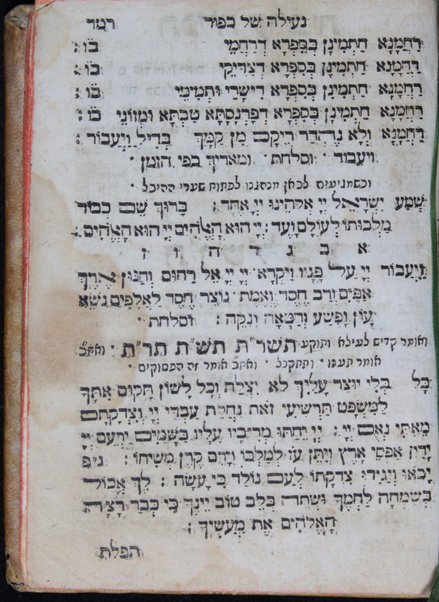 נעילה של כפור רמד
רַחֲמָנָא חַתְמִינָן בְּסִפְרָא דְרַחֲמֵי בו׃
רַחֲמָנָא חַתְמִינָן בְּסִפְרָא דְצַדִּיקֵי בו׃
רַחֲמָנָא חַתְמִינָן בְּסִפְרָא דִישָׁרֵי וּתְמִימֵי בו׃
רַחֲמָנָא חַתְמִינָן בְּסִפְרָא דְפַרְנָסָתָא טָבְתָּא וּמְזוֹנֵי בו׃
רַחֲמָנָא וְלָא נֶהְדַּר רֵיקָם מִן קַמָּךְ׃ בְּדִיל וַיַּעֲבוֹר׃
ויעבור ׳ וסלחת ׳ ומאריך בפי הזמן ׳
וכשמגיעים לכאן מנהגנו לפתוח שערי ההיכל ׳
שְׁמַע יִשְׂרָאֵל יְיָ אֱלֹהֵינוּ יְיָ אֶחָד׃ בָּרוּךְ שֵׁם כְּבוֹד
מַלְכוּתוֹ לְעוֹלָם וָעֶד׃ יְיָ הוּא הָאֱלֹהִים יְיָ הוּא הָאֱלֹהִים׃
א ב ג ד ה ו ז
וַיַּעֲבוֹר יְיָ עַל פָּנָיו וַיִּקְרָא׳ יְיָ יְיָ אֵל רַחוּם וְחַנּוּן אֶרֶךְ
אַפַּיִם וְרַב חֶסֶד וֶאֱמֶת׳ נוֹצֵר חֶסֶד לַאֲלָפִים נֹשֵׂא
עָוֹן וָפֶשַׁע וְחַטָּאָה וְנַקֵּה׃ וסלחת׳
ואומר קדיש לעילא ותוקע תשר״ת תש״ת תר״ת ׳ ואח״כ
אומר תענו ׳ ותתקבל ׳ ואח״כ אומר זה הפסוקים ׳
כָּל כְּלִי יוּצַר עָלַיִךְ לֹא יִצְלָח וְכָל לָשׁוֹן תָּקוּם אִתָּךְ
לַמִּשְׁפָּט תַּרְשִׁיעִי זֹאת נַחֲלַת עַבְדֵי יְיָ וְצִדְקָתָם
מֵאִתִּי נְאֻם יְיָ׃ יְיָ יֵחַתּוּ מְרִיבָיו עָלָיו בַּשָּׁמַיִם יַרְעֵם יְיָ
יָדִין אַפְסֵי אָרֶץ וְיִתֶּן עֹז לְמַלְכּוֹ וְיָרֵם קֶרֶן מְשִׁיחוֹ׃
יָבֹאוּ וְיַגִּידוּ צִדְקָתוֹ לְעַם נוֹלָד כִּי עָשָׂה׃ לֵךְ אֱכוֹל
בְּשִׂמְחָה לַחְמֶךָ וּשְׁתֵה בְלֶב טוֹב יֵינֶךָ כִּי כְבָר רָצָה
הָאֱלֹהִים אֶת מַעֲשֶׂיךָ׃
תפלת